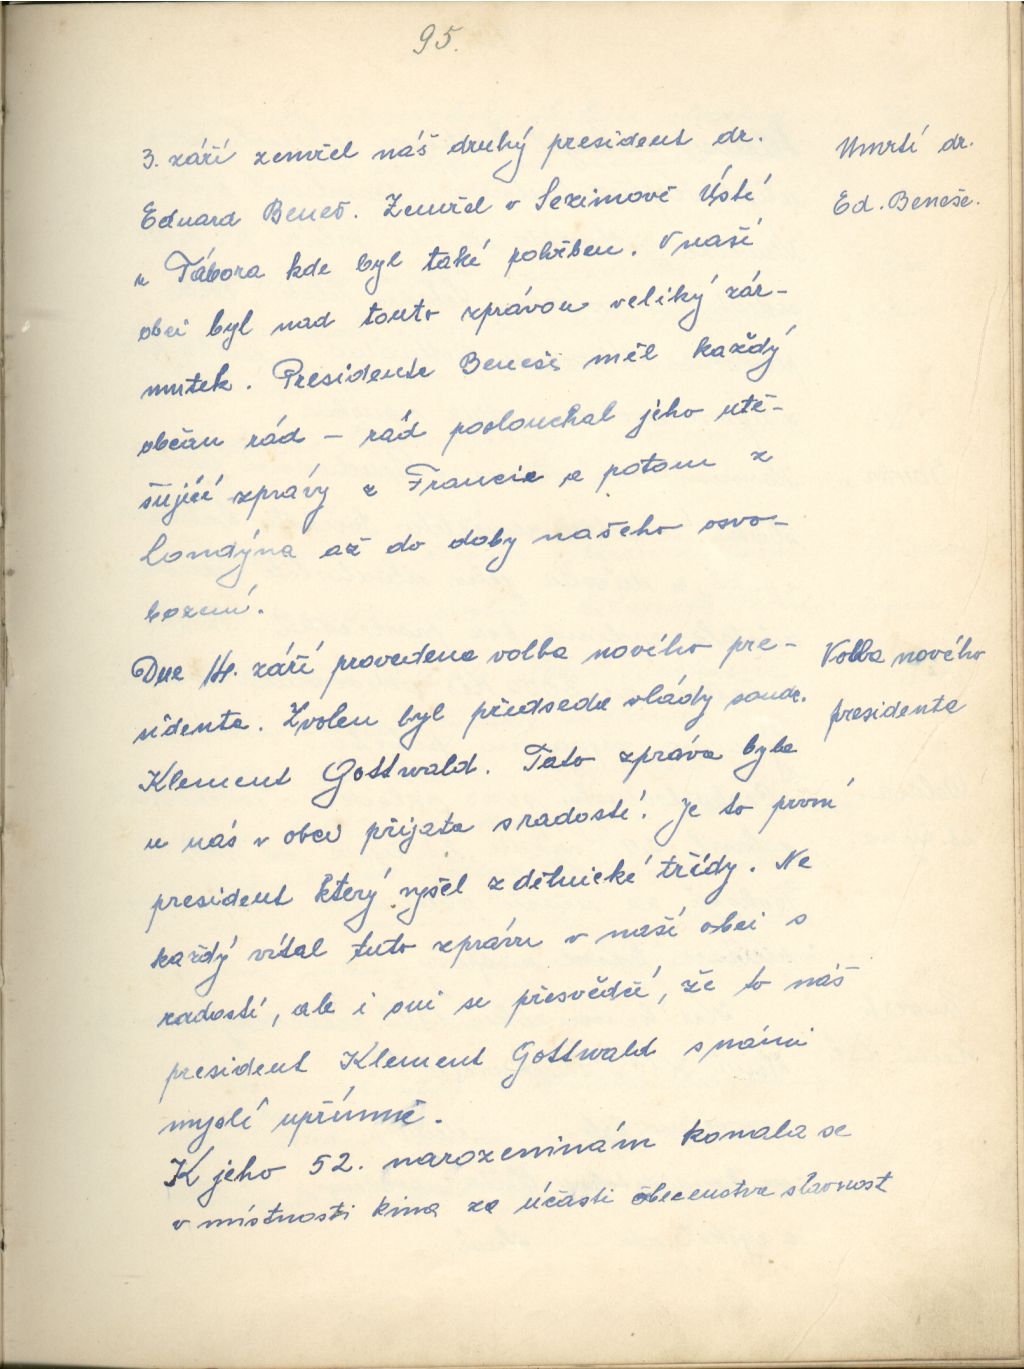 95.
3. září zemřel náš druhý president dr.
Umrtí dr.
Eduard Beneš. Zemřel v Sezimově Ústí
Ed. Beneše.
u Tábora kde byl také pohřben. V naší
obci byl nad touto zprávou veliký zár-
mutek. Presidenta Beneše měl každý
občan rád – rád poslouchal jeho utě-
šující zprávy z Francie a potom z
Londýna až do doby našeho osvo-
bození.
Dne 14. září provedena volba nového pre-
Volba nového
sidenta. Zvolen byl předseda vlády soudr.
presidenta
Klement Gottwald. Tato zpráva byla
u nás v obci přijata s radostí. Je to první
president který vyšel z dělnické třídy. Ne
každý vítal tuto zprávu v naší obci s
radostí, ale i oni se přesvědčí, že to náš
president Klement Gottwald s námi
myslí upřímně.
K jeho 52. narozeninám konala se
v místnosti kina za účasti obecenstva slavnost